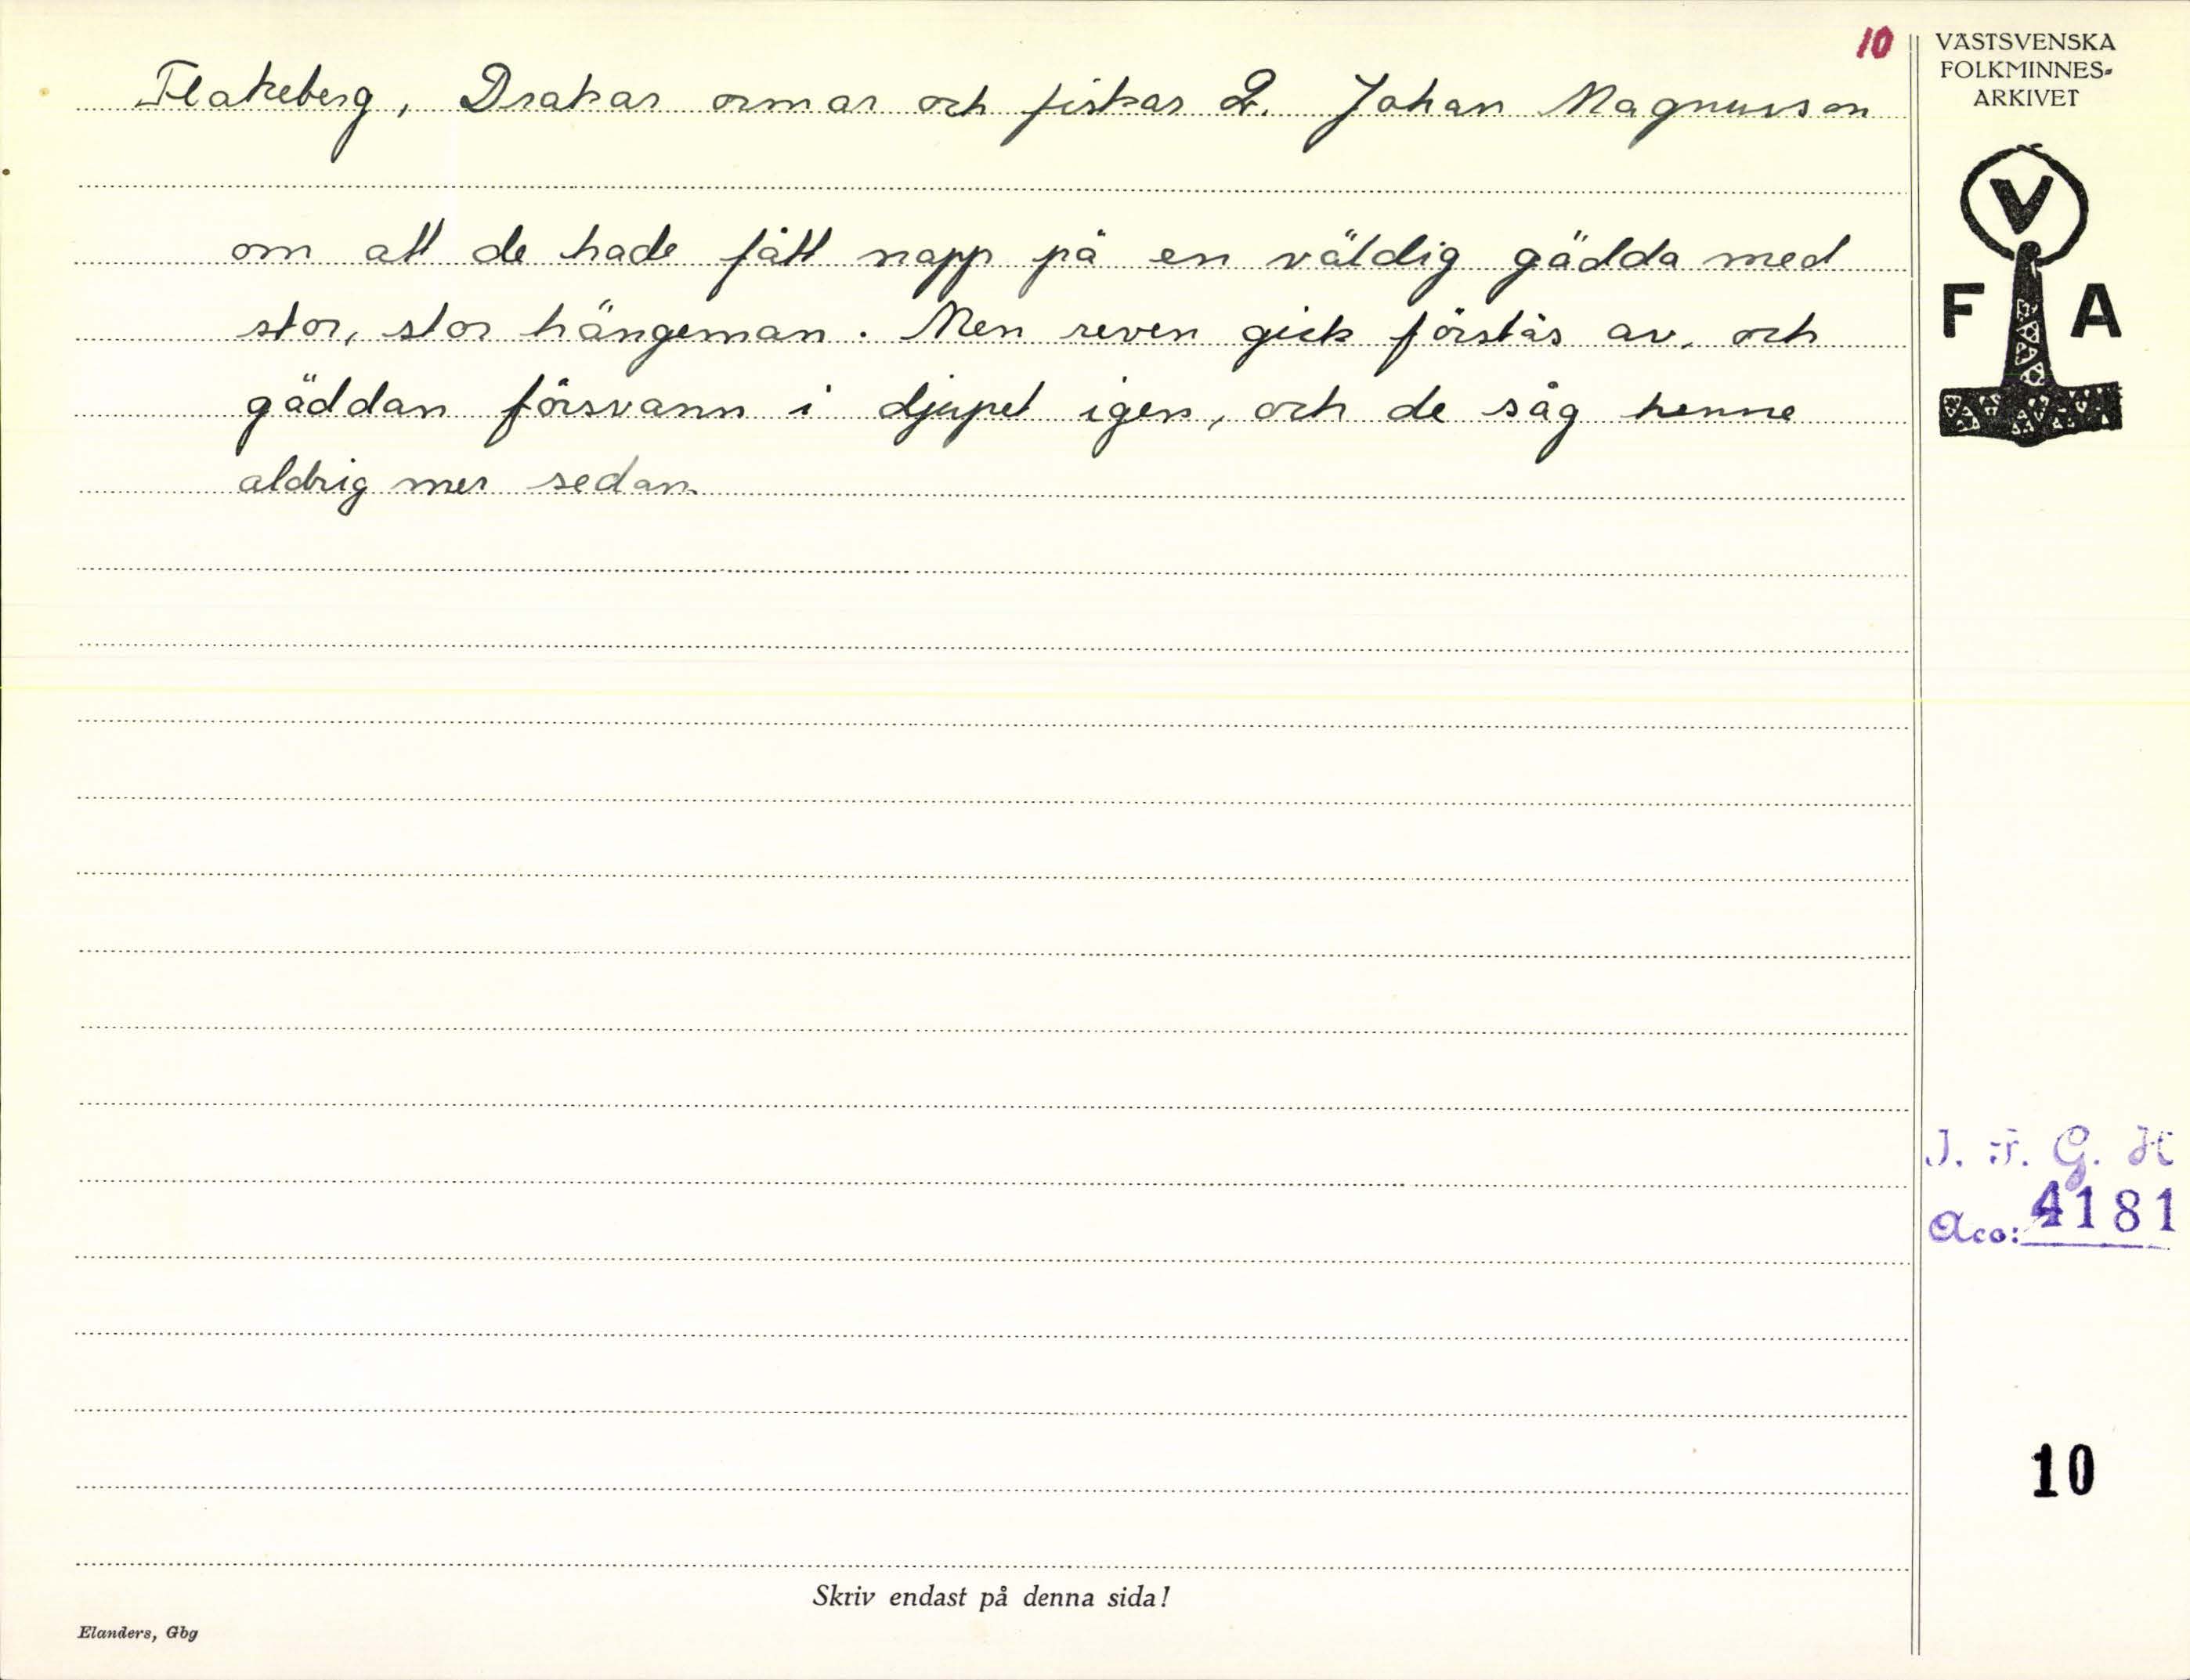 10
Flakeberg, Drakar ormar och fiskar 2. Johan Magnusson
om att de hade fått napp på en väldig gädda med
stor, stor hängeman. Men reven gick förstås av, och
gäddan försvann i djupet igen, och de såg henne
aldrig mer sedan.
VÄSTSVENSKA
FOLKMINNES-
ARKIVET
V
F A
I. F. G. H
Acc: 4181
10
Skriv endast på denna sida!
Elanders, Gbg